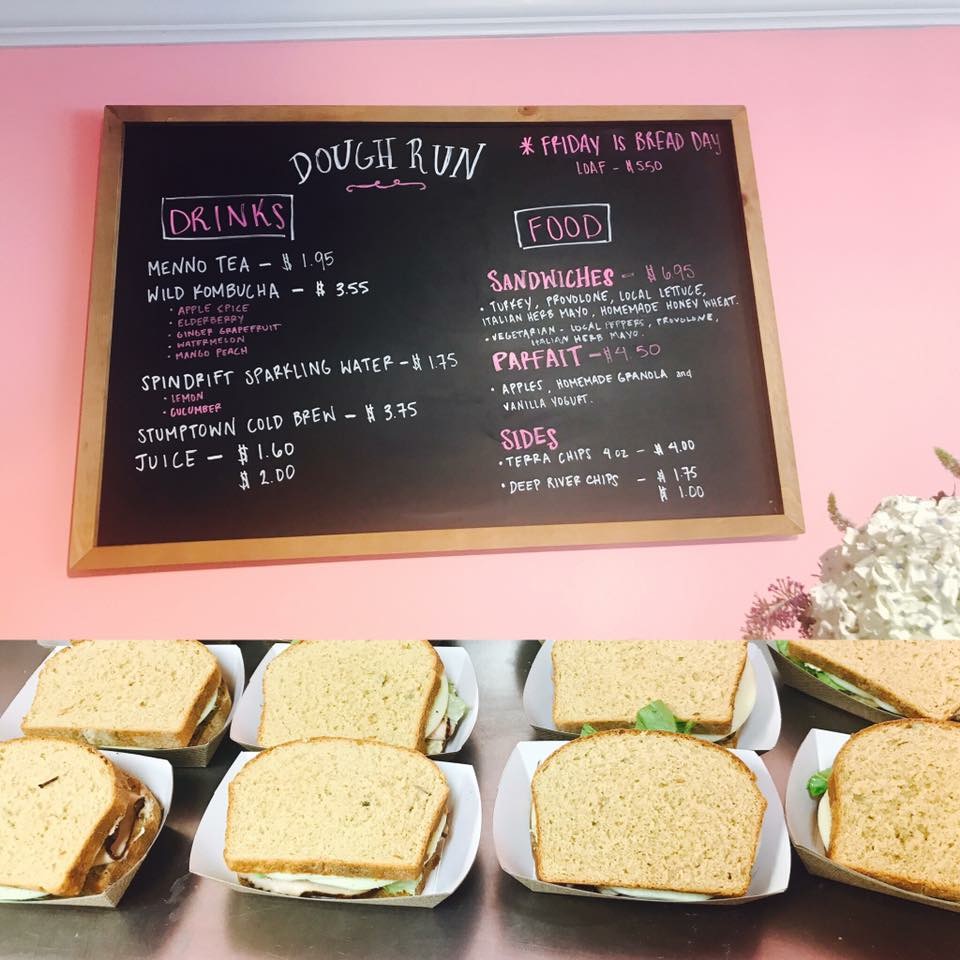 DOUGH RUN
* FRIDAY IS BREAD DAY
LOAF - $5.50
DRINKS
MENNO TEA - $ 1.95
WILD KOMBUCHA - $ 3.55
• APPLE SPICE
• ELDERBERRY
• GINGER GRAPEFRUIT
• WATERMELON
• MANGO PEACH
SPINDRIFT SPARKLING WATER - $ 1.75
• LEMON
• CUCUMBER
STUMPTOWN COLD BREW - $ 3.75
JUICE - $ 1.60
$ 2.00
FOOD
SANDWICHES - $ 6.95
• TURKEY, PROVOLONE, LOCAL LETTUCE,
ITALIAN HERB MAYO, HOMEMADE HONEY WHEAT.
• VEGETARIAN - LOCAL PEPPERS, PROVOLONE,
ITALIAN HERB MAYO.
PARFAIT - $4.50
• APPLES, HOMEMADE GRANOLA and
VANILLA YOGURT.
SIDES
• TERRA CHIPS 4 oz - $ 4.00
• DEEP RIVER CHIPS - $ 1.75
$ 1.00